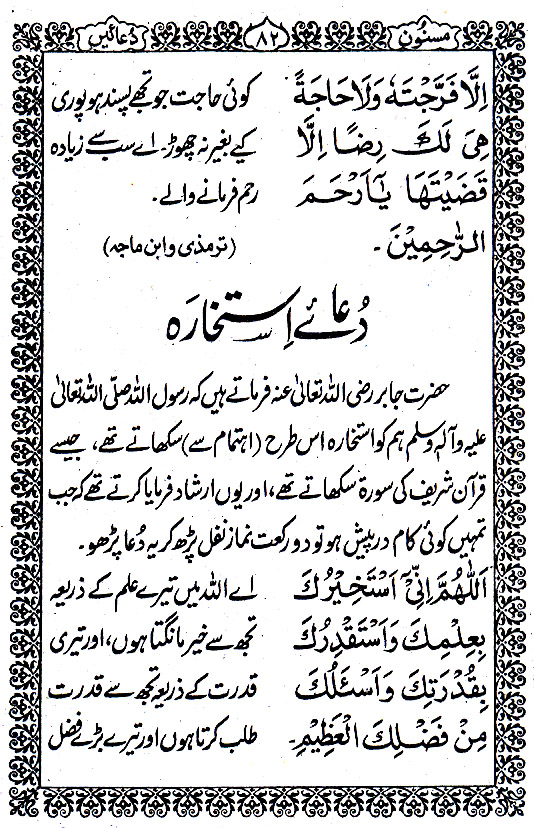 مسنون ۸۲ دعائیں
اِلَّا فَرَّجْتَهٗ وَلَا حَاجَةً کوئی حاجت جو تجھے پسند ہو پوری
هِیَ لَكَ رِضًا اِلَّا کیے بغیر نہ چھوڑ۔ اے سب سے زیادہ
قَضَیْتَهَا یَآ اَرْحَمَ رحم فرمانے والے۔
الرّٰحِمِیْنَ۔ (ترمذی و ابن ماجہ)
دُعائے اِستخارَہ
حضرت جابر رضی اللہ تعالیٰ عنہ فرماتے ہیں کہ رسول اللہ صلّی اللہ تعالیٰ
علیہ وآلہٖ وسلم ہم کو استخارہ اس طرح (اہتمام سے) سکھاتے تھے، جیسے
قرآن شریف کی سورۃ سکھاتے تھے، اور یوں ارشاد فرمایا کرتے تھے کہ جب
تمہیں کوئی کام درپیش ہو تو دو رکعت نماز نفل پڑھ کر یہ دُعا پڑھو۔
اَللّٰهُمَّ اِنِّیْٓ اَسْتَخِیْرُكَ اے اللہ میں تیرے علم کے ذریعہ
بِعِلْمِكَ وَاَسْتَقْدِرُكَ تجھ سے خیر مانگتا ہوں، اور تیری
بِقُدْرَتِكَ وَاَسْئَلُكَ قدرت کے ذریعہ تجھ سے قدرت
مِنْ فَضْلِكَ الْعَظِیْمِ۔ طلب کرتا ہوں اور تیرے بڑے فضل